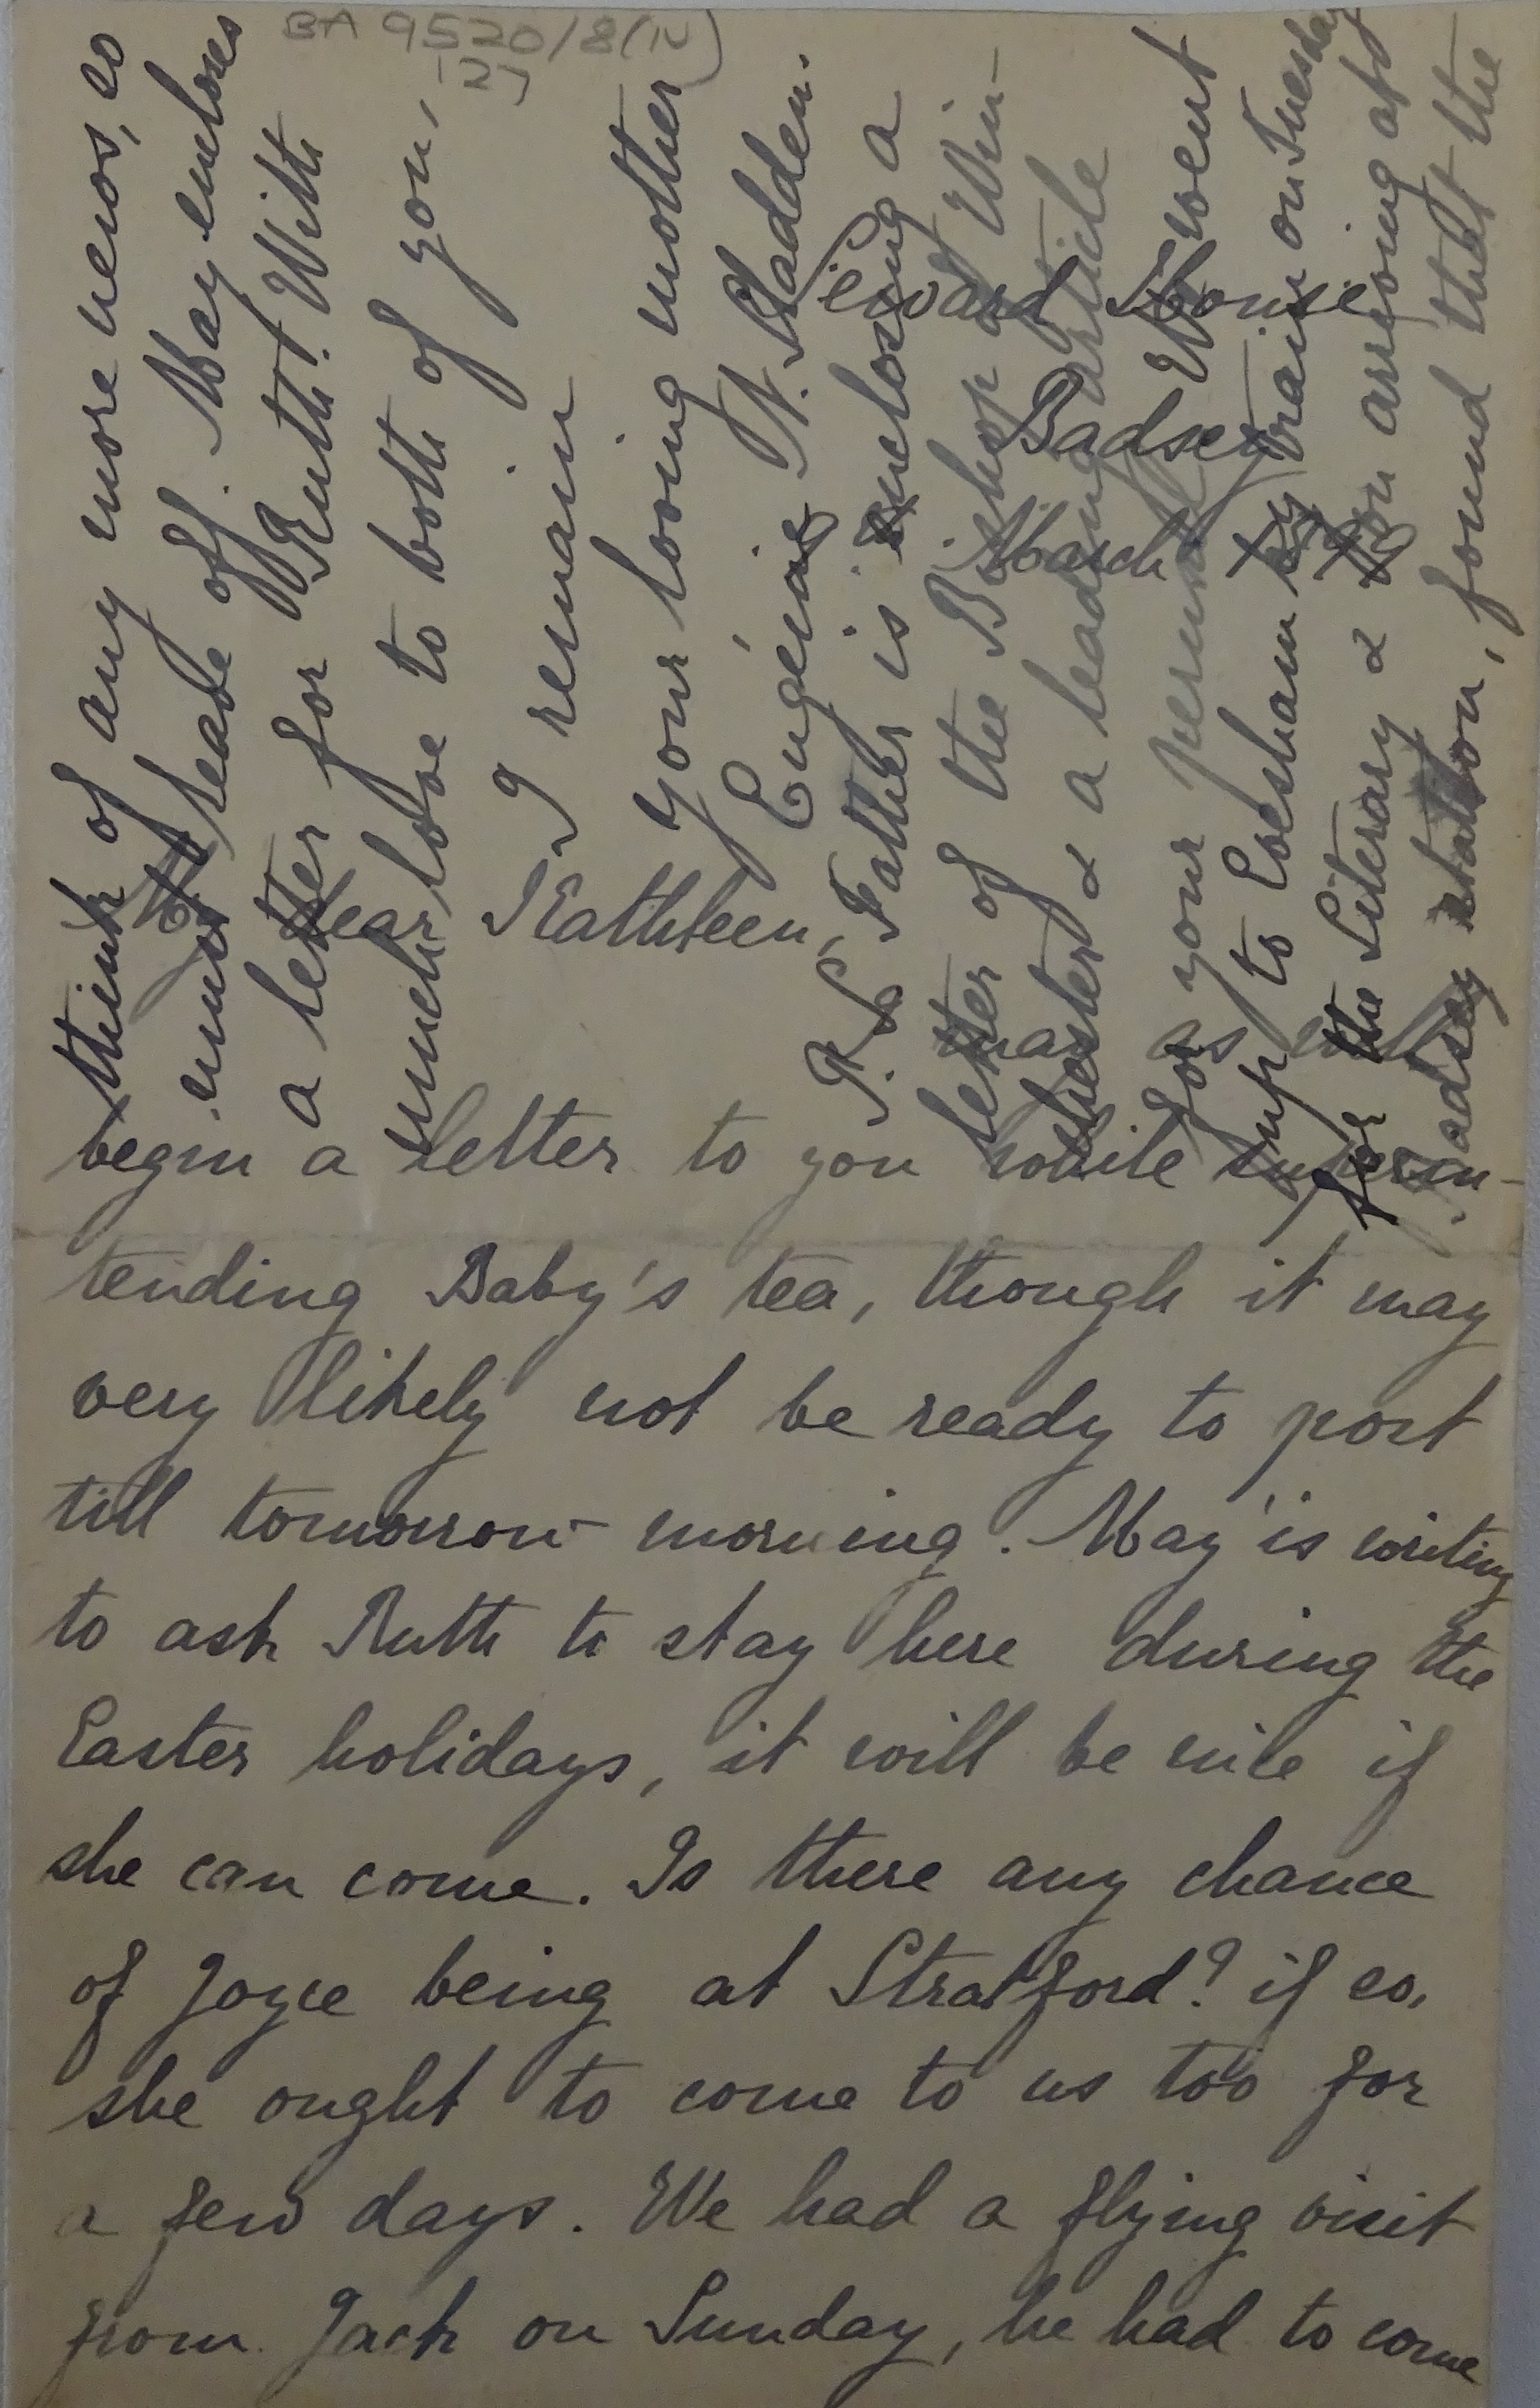 BA 9520/8(iv)
-2)
Seward House
Badsey
March
My dear Kathleen,
I may as well
begin a letter to you while superin-
tending Baby's tea, though it may
very likely not be ready to post
till tomorrow morning. May is writing
to ask Ruth to stay here during the
Easter holidays, it will be nice if
she can come. Is there any chance
of Joyce being at Stratford? if so,
she ought to come to us too for
a few days. We had a flying visit
from Jack on Sunday, he had to come
think of any more news, so
must leave off. May encloses
a letter for Ruth. With
much love to both of you,
I remain
your loving mother
Eugénie N. Sladden.
P.S. Father is enclosing a
letter of the Bishop of Win-
chester & a leading article
for your perusal. We went
up to Evesham by train on Tuesday
for the Literary & on arriving at
Badsey station, found that the